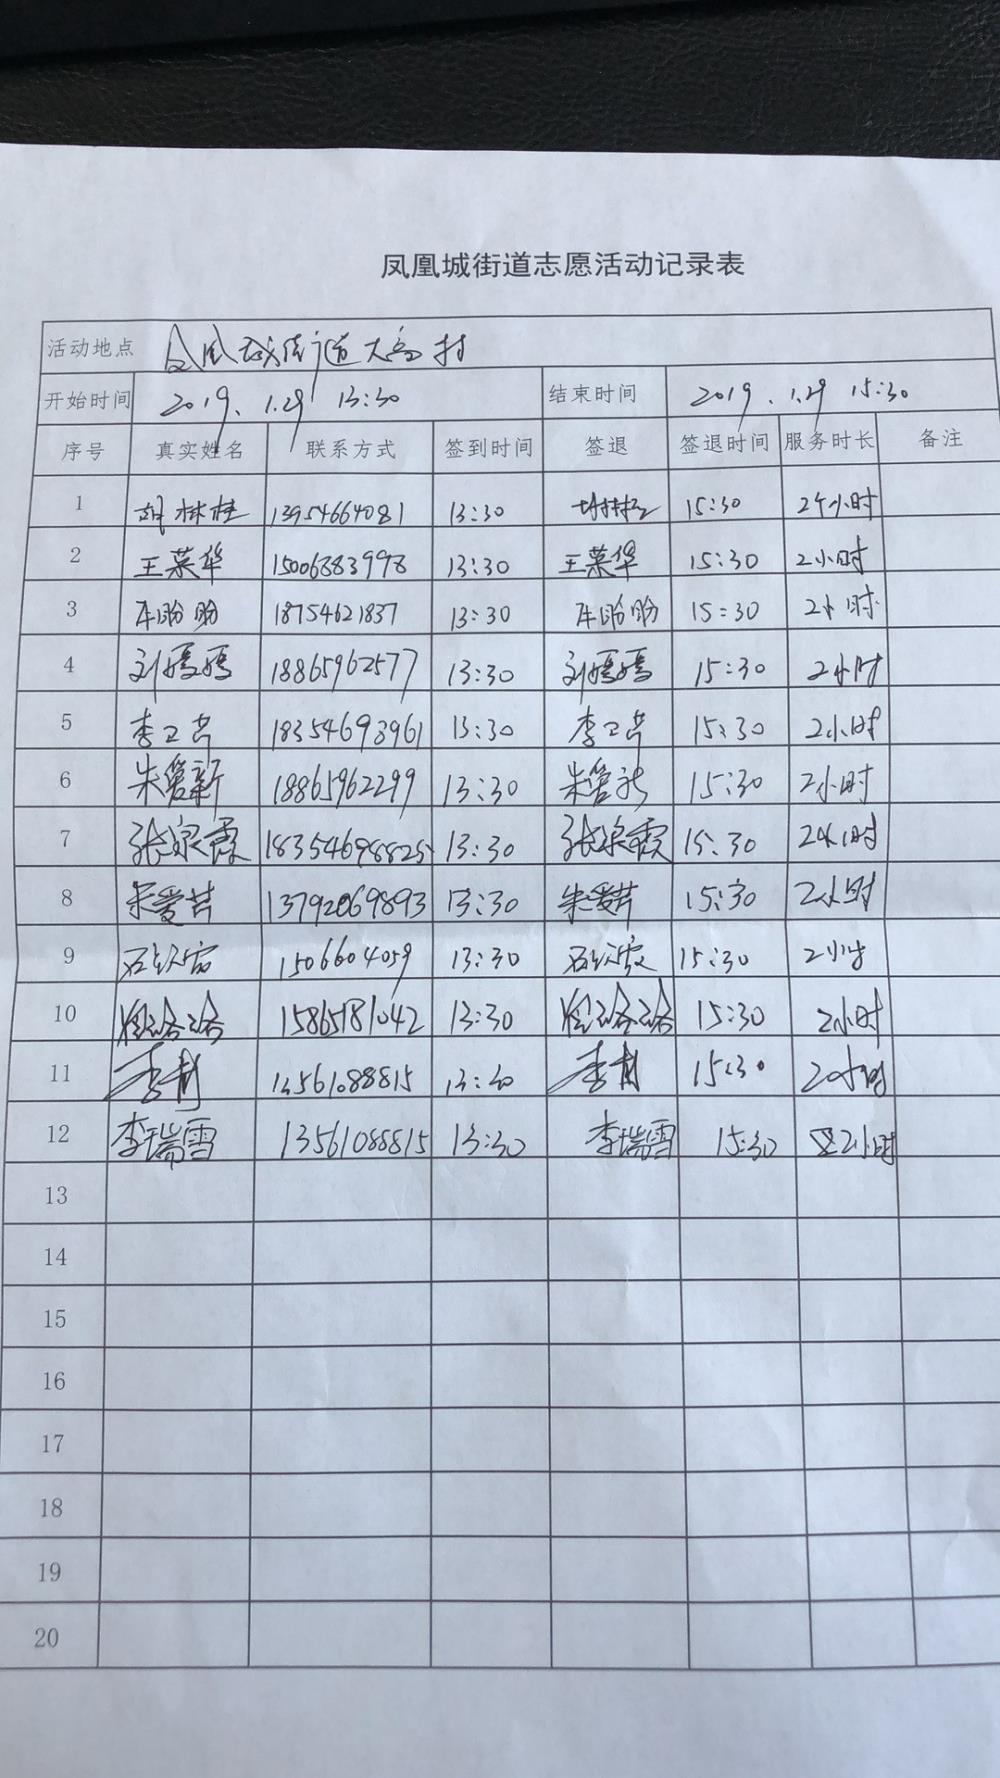 凤凰城街道志愿活动记录表
活动地点 凤凰城街道大高村
开始时间 2019.1.29 13:30 结束时间 2019.1.29 15:30
序号 真实姓名 联系方式 签到时间 签退 签退时间 服务时长 备注
1 胡林桂 13954664081 13:30 胡林桂 15:30 2个小时
2 王荣华 15006883998 13:30 王荣华 15:30 2小时
3 车盼盼 18754621837 13:30 车盼盼 15:30 2小时
4 刘嫣嫣 18865962577 13:30 刘嫣嫣 15:30 2小时
5 李卫芹 18354693961 13:30 李卫芹 15:30 2小时
6 朱爱新 18865962299 13:30 朱爱新 15:30 2小时
7 张泉霞 18354698825 13:30 张泉霞 15:30 2小时
8 朱爱芹 13792069893 13:30 朱爱芹 15:30 2小时
9 1506604059 13:30 15:30 2小时
10 程璐璐 15865181042 13:30 程璐璐 15:30 2小时
11 李青 13561088815 13:30 李青 15:30 2小时
12 李瑞雪 13561088815 13:30 李瑞雪 15:30 2小时
13
14
15
16
17
18
19
20